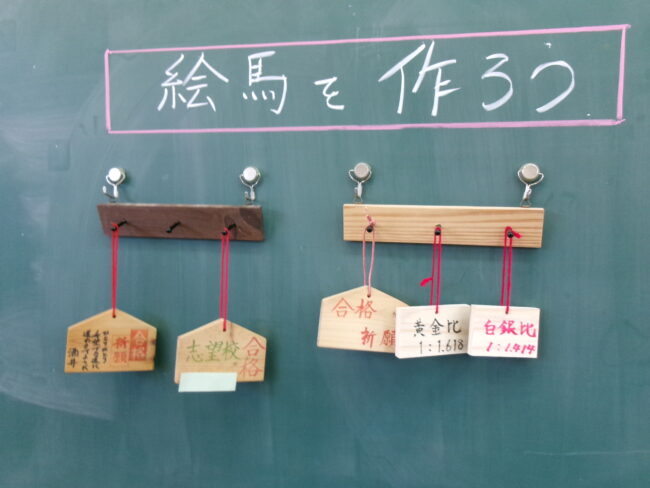 絵馬を作ろう
合格
祈願
酒井
志望校
合格
合格
祈願
黄金比
1:1.618
白銀比
1:1.414